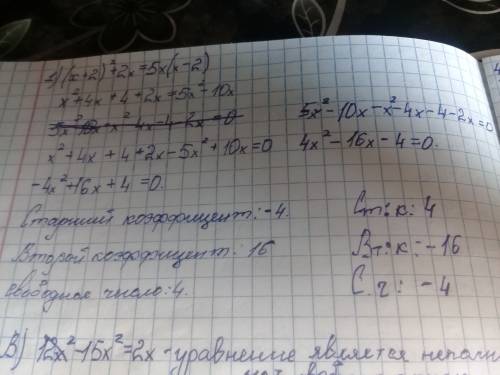 1) (x+2)²+2x=5x(x-2)
x²+4x+4+2x=5x²-10x
x²+4x+4+2x-5x²+10x=0
-4x²+16x+4=0.
Старший коэффициент: -4.
Второй коэффициент: 16
свободное число: 4.
5x²-10x-x²-4x-4-2x=0
4x²-16x-4=0.
Ст. к: 4
Вт. к: -16
С. г: -4
В) 12x²-15x²=2x - уравнение является